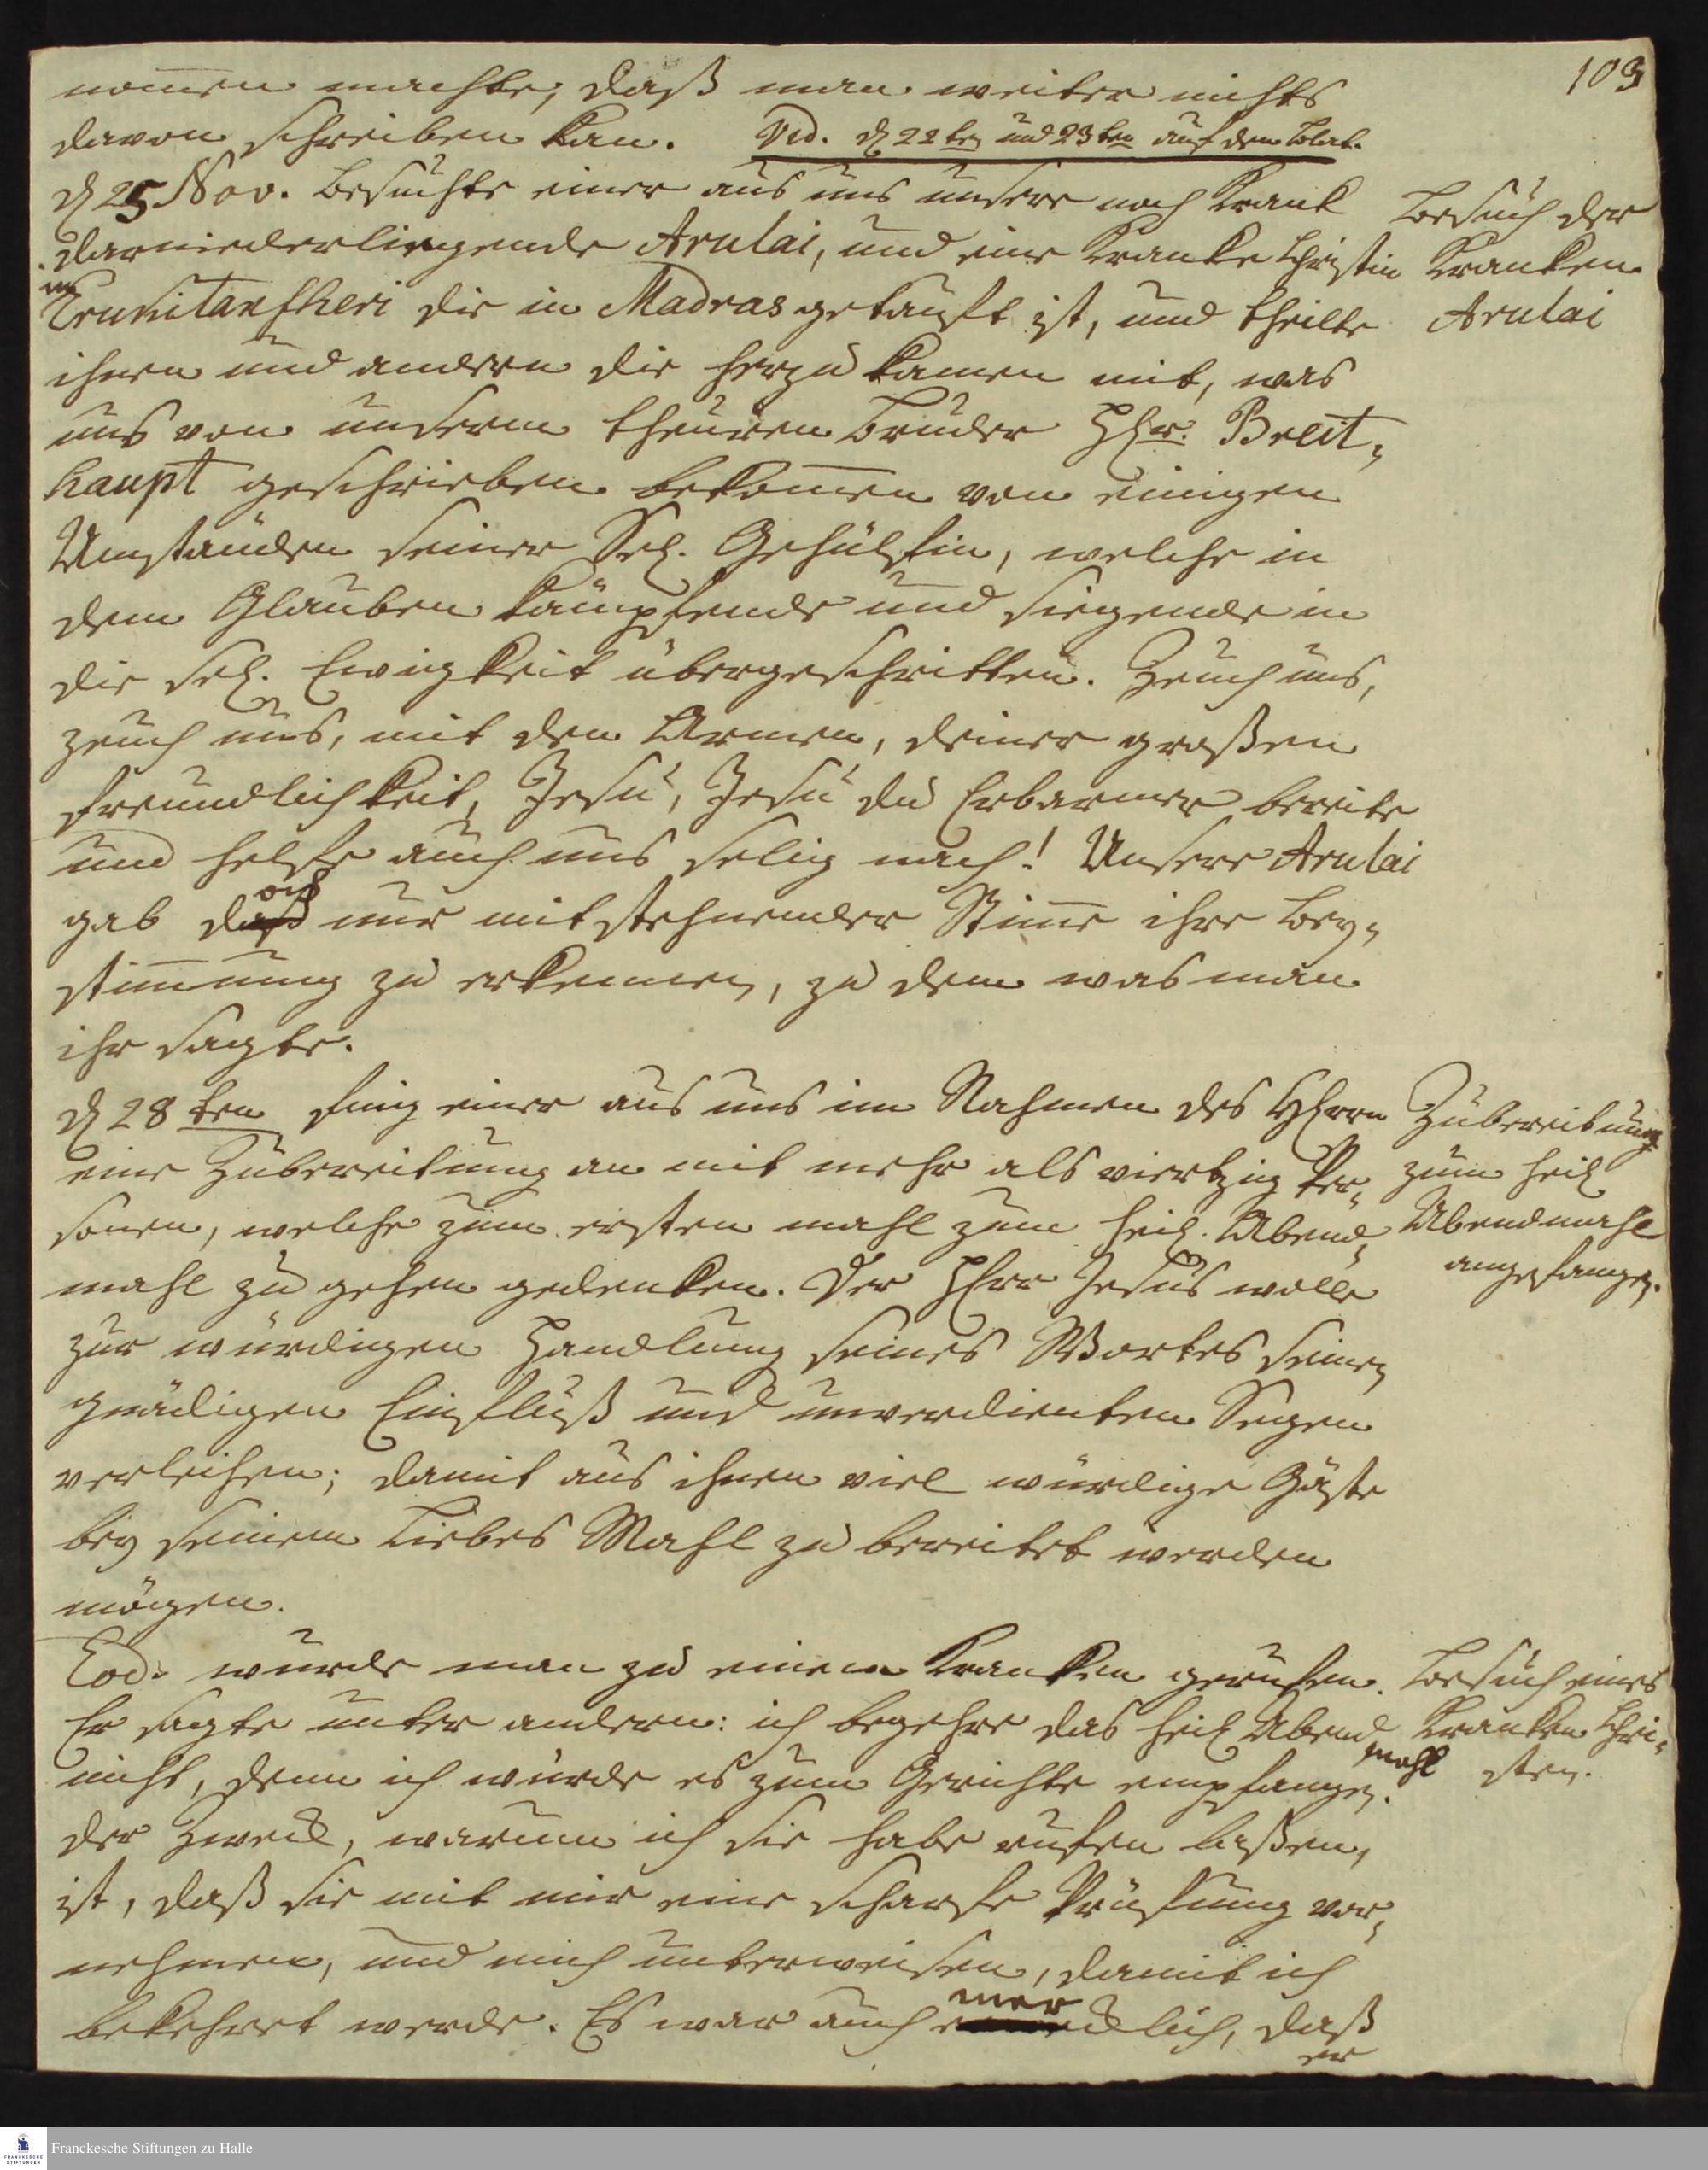 103
nom̅en machte, daß man weiter nichts
davon schreiben kan. Vid. d 22ten und 23ten auf dem Blat.
d 25 Nov. besuchte einer aus uns unsere noch kranck
darniederliegende Arulai, und eine krancke Christin
in Erukitanscheri die in Madras getauft ist, und theilte
ihnen und andern die herzu kamen mit, was
uns von unserm theuren Bruder HEr. Breit-
haupt geschrieben bekom̅en von einigen
Umständen seiner Sel. Gehülfin, welche in
dem Glauben kämpfende und siegende in
die sel. Ewigkeit übergeschritten. Zeuch uns,
zeuch uns, mit den Armen, deiner großen
Freundlichkeit, Jesu, Jesu du Erbarmer bereite
und helfe auch uns selig nach! Unsere Arulai
gab doch nur mit stehnender Stim̅e ihre Bey-
stim̅ung zu erkennen, zu dem was man
ihr sagte.
Besuch der
Krancken
Arulai
d 28ten fing einer aus uns im Nahmen des HErrn
eine Zubereitung an mit mehr als viertzig Per-
sonen, welche zum ersten mahl zum heil. Abend-
mahl zu gehen gedencken. Der HErr Jesus wolle
zur würdigen Handlung seines Wortes seinen
gnädigen Einfluß und unverdienten Segen
verleihen; damit aus ihnen viel würdige Gäste
bey seinem Liebes Mahl zu bereitet werden
mögen.
Zubereitung
zum heil
Abendmahl
angefangen.
Eod. wurde man zu einem Krancken gerufen.
Er sagte unter andern: ich begehre das heil Abend
mahl
nicht, denn ich würde es zum Gerichte empfangen.
der Zweck, warum ich sie habe rufen laßen,
ist, daß sie mit mir eine scharfe Prüfung vor-
nehmen, und mich unterweisen, damit ich
bekehret werde. Es war auch mercklich, daß
er
Besuch eines
Krancken Chri-
sten.
Franckesche Stiftungen zu Halle